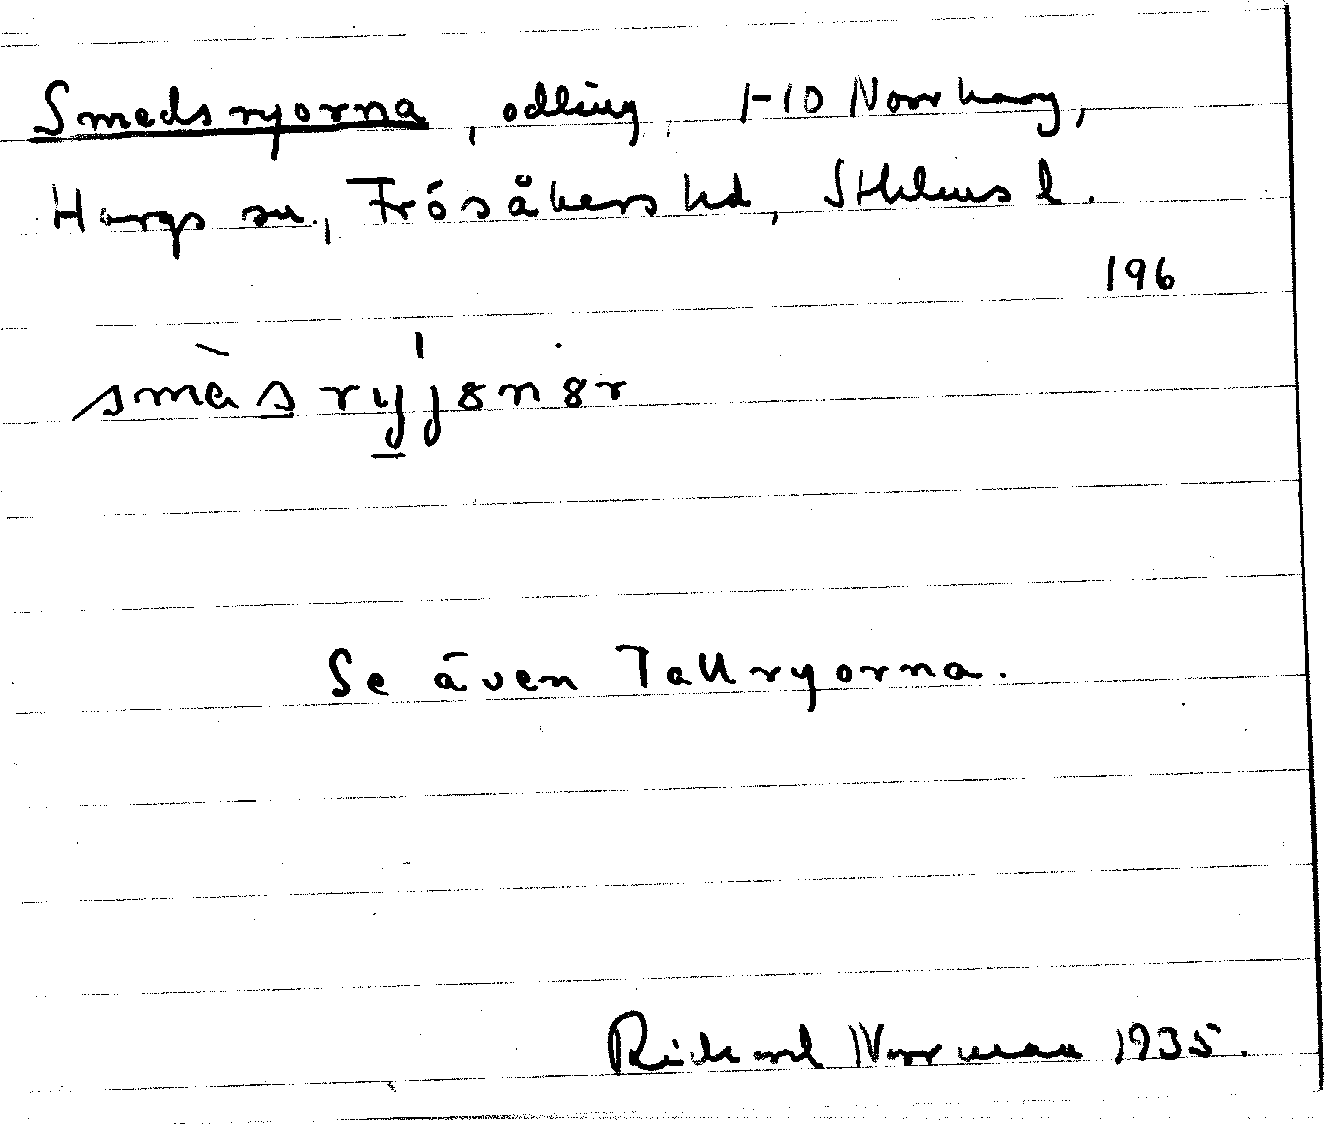 Smedsryorna, odling, 1-10 Norrharg,
Hargs sn., Frösåkers hd, Sthlms l.
196
smèsry̱jȣnȣr
Se även Tallryorna.
Rickard Norrman 1935.